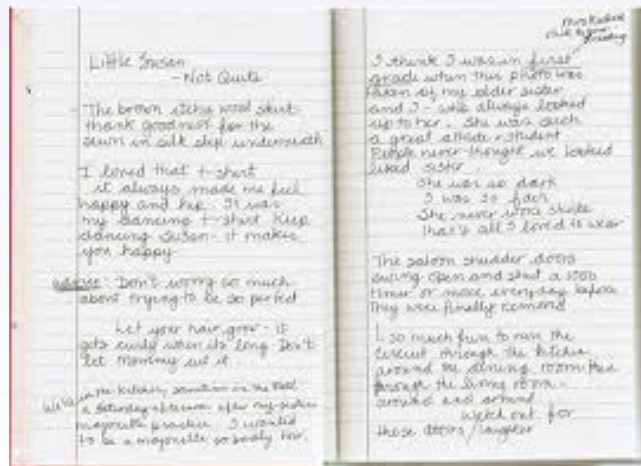 Little Susan
- Not Quite
The brown itchy wool skirt
thank goodness for the
sewn in silk slip underneath
I loved that t-shirt
it always made me feel
happy and hip. It was
my dancing t-shirt Keep
dancing Susan - it makes
you happy
advice: Don't worry so much
about trying to be so perfect
Let your hair grow - it
gets curly when its long Don't
let Mommy cut it
in the kitchen, sometime in the
a Saturday afternoon after my sisters
majorette practice. I wanted
to be a majorette so badly too.
I think I was in first
grade when this photo was
taken of my older sister
and I - who always looked
up to her. She was such
a great athlete + student
People never thought we looked
liked sister
She was so dark
I was so fair
She never wore skirts
That's all I loved to wear
The saloon shudder doors
swung open and shut a 1000
times or more everyday before
they were finally removed
so much fun to run the
circuit through the kitchen
around the dining room then
through the living room -
around and around
Watch out for
those doors/laughter